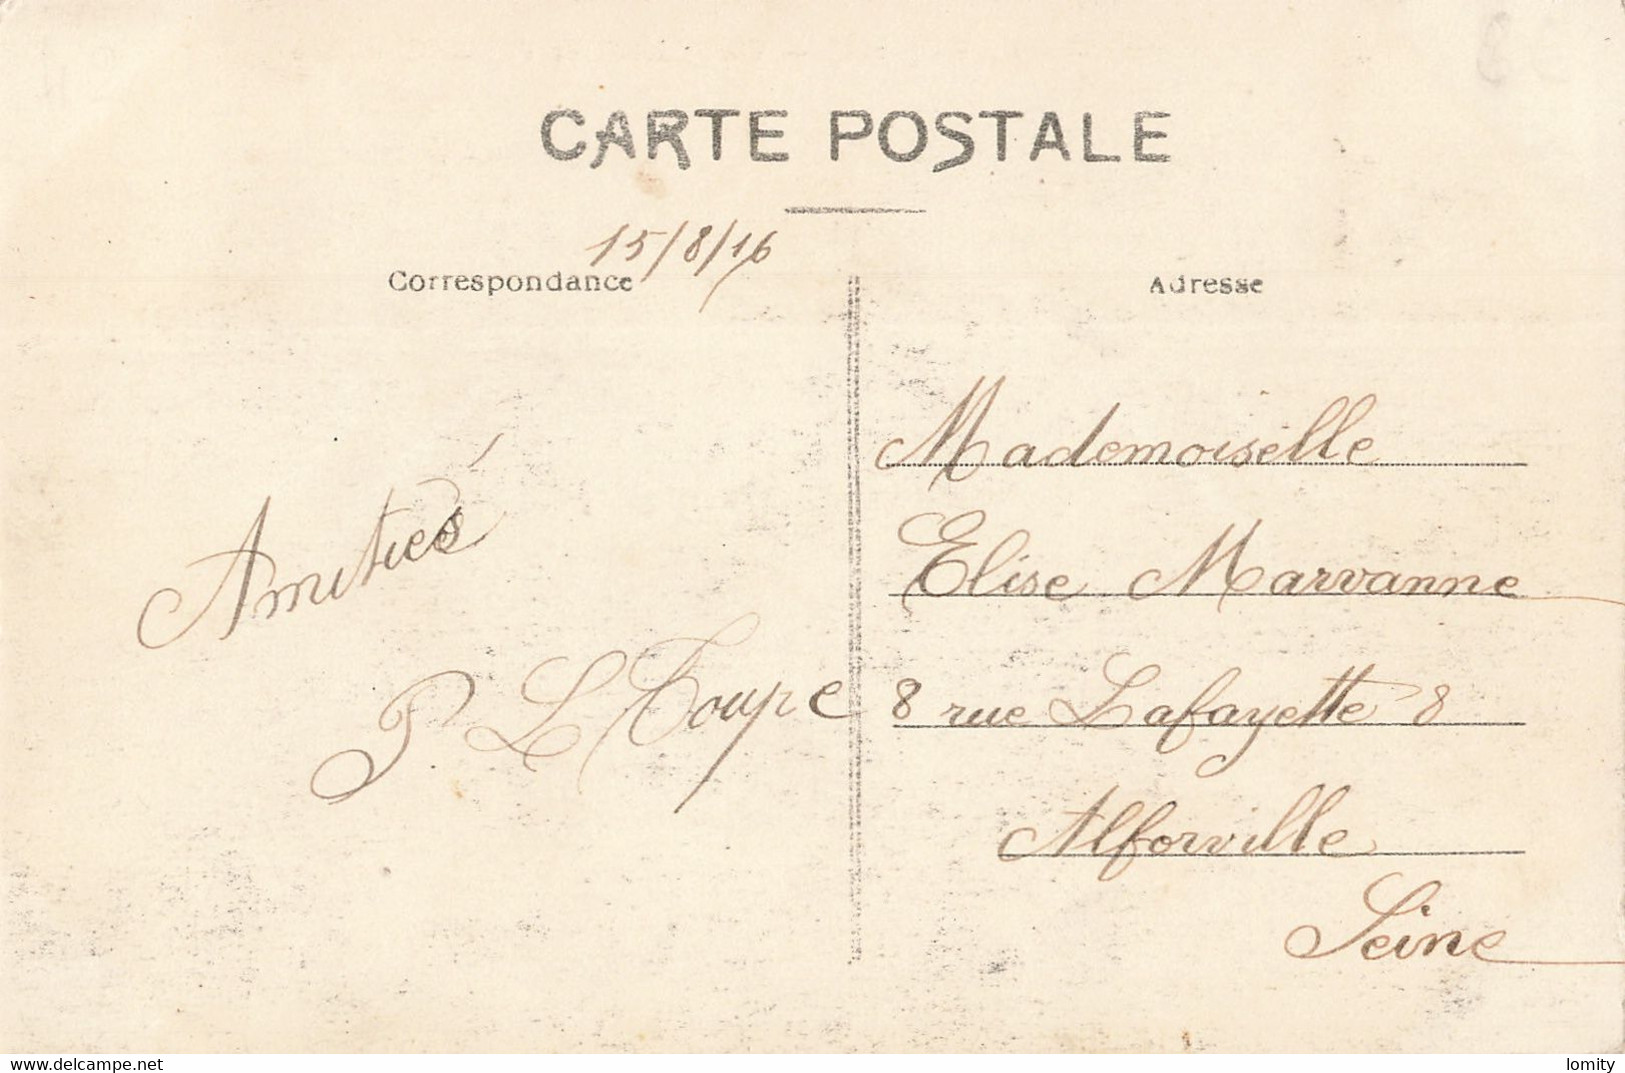 CARTE POSTALE
15/8/16
Correspondance
Adresse
Amitiés
P. L. Toupe
Mademoiselle
Elise Marvanne
8 rue Lafayette 8
Alforville
Seine
www.delcampe.net
lomity